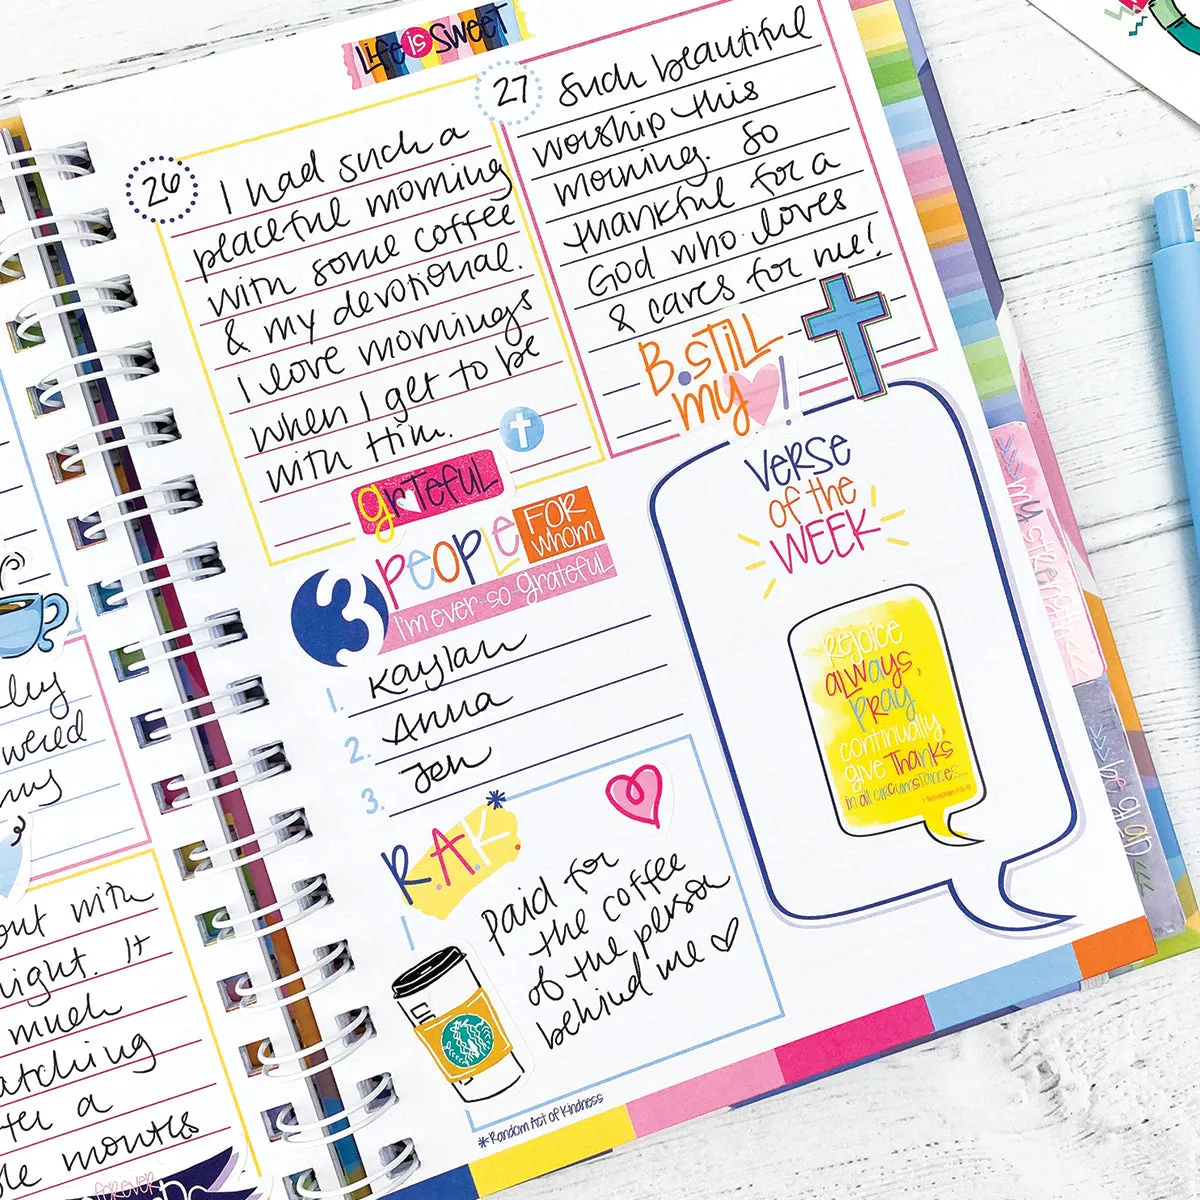 LiFe is SWEET
26
I had such a
peaceful morning
with some coffee
& my devotional.
I love mornings
when I get to be
with Him.
grateful
27
Such beautiful
worship this
morning. So
thankful for a
God who loves
& cares for me!
B.STiLL
my !
3 PEOPLE FOR whom
I'm ever-so-grateful
1. Kaylan
2. Anna
3. Jen
R.A.K.*
Paid for
the coffee
of the person
behind me
*Random Act of Kindness
VERSE
OF the
WEEK
Rejoice
always,
Pray
continually
give Thanks
in all circumstances...
my strength
ered
out with
night. It
much
atching
a
months
FOREVER